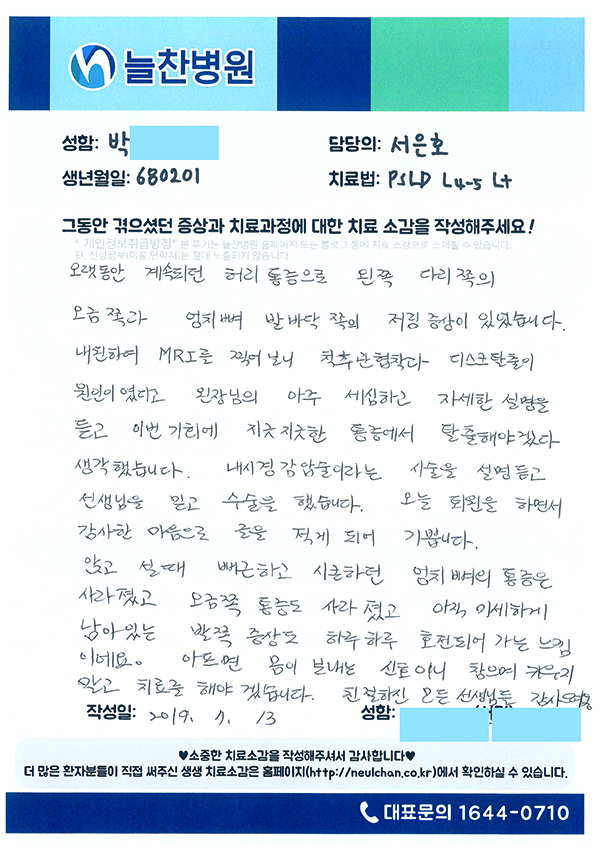 늘찬병원
성함: 박
담당의: 서은호
생년월일: 680201
치료법: PSLD L4-5 Lt
그동안 겪으셨던 증상과 치료과정에 대한 치료 소감을 작성해주세요!
* 개인정보취급방침* 본 후기는 늘찬병원 홈페이지 또는 블로그 등에 치료 소감으로 소개될 수 있습니다.
단, 신상정보(이름,연락처)는 절대 노출되지 않습니다.
오랫동안 계속되던 허리 통증으로 왼쪽 다리 쪽의
오금 쪽과 엉치뼈 발바닥 쪽의 저림 증상이 있었습니다.
내원하여 MRI를 찍어 보니 척추관협착과 디스크탈출이
원인이었다고 원장님의 아주 세심하고 자세한 설명을
듣고 이번 기회에 지긋지긋한 통증에서 탈출해야겠다
생각했습니다. 내시경감압술이라는 시술을 설명 듣고
선생님을 믿고 수술을 했습니다. 오늘 퇴원을 하면서
감사한 마음으로 글을 적게 되어 기쁩니다.
앉고 설때 뻐근하고 시큰하던 엉치뼈의 통증은
사라졌고 오금쪽 통증도 사라졌고 아직 미세하게
남아있는 발쪽 증상도 하루하루 호전되어 가는 느낌
이네요. 아프면 몸이 보내는 신호이니 참으며 키우지
말고 치료를 해야 겠습니다. 친절하신 모든 선생님들 감사
작성일: 2019. 7. 13
성함:
♥소중한 치료소감을 작성해주셔서 감사합니다♥
더 많은 환자분들이 직접 써주신 생생 치료소감은 홈페이지(http://neulchan.co.kr)에서 확인하실 수 있습니다.
대표문의 1644-0710